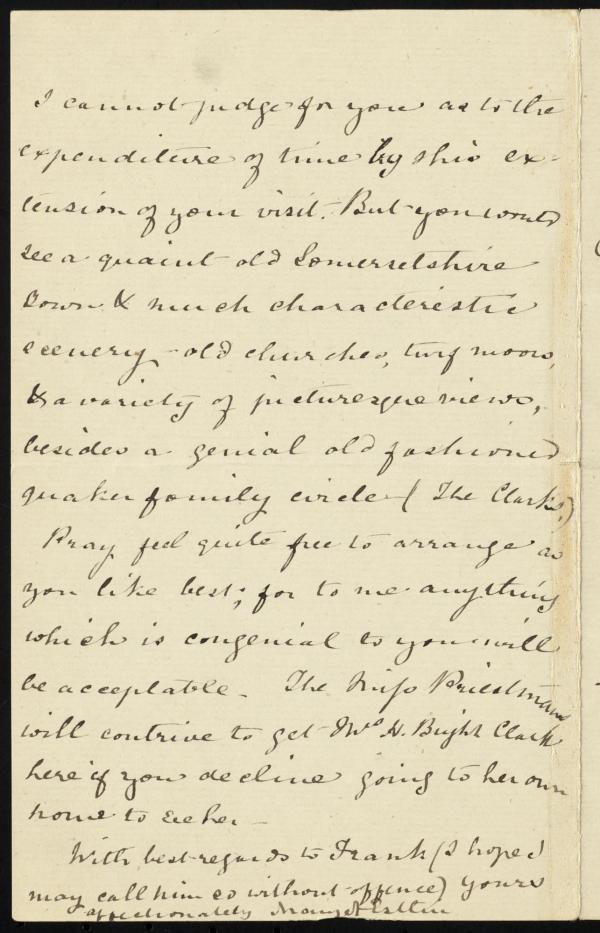 I cannot judge for you as to the
expenditure of time by this ex-
tension of your visit. But you would
see a quaint old Somersetshire
Town & much characteristic
scenery - old churches, turf moors,
& a variety of picturesque views,
besides a genial old fashioned
quaker family circle (The Clarks.)
Pray feel quite free to arrange as
you like best; for to me anything
which is congenial to you will
be acceptable - The Miss Priestmans
will contrive to get Mrs. H. Bright Clark
here if you decline going to her own
home to see her -
With best regards to Frank (I hope I
may call him so without offence) yours
affectionately Mary A Estlin